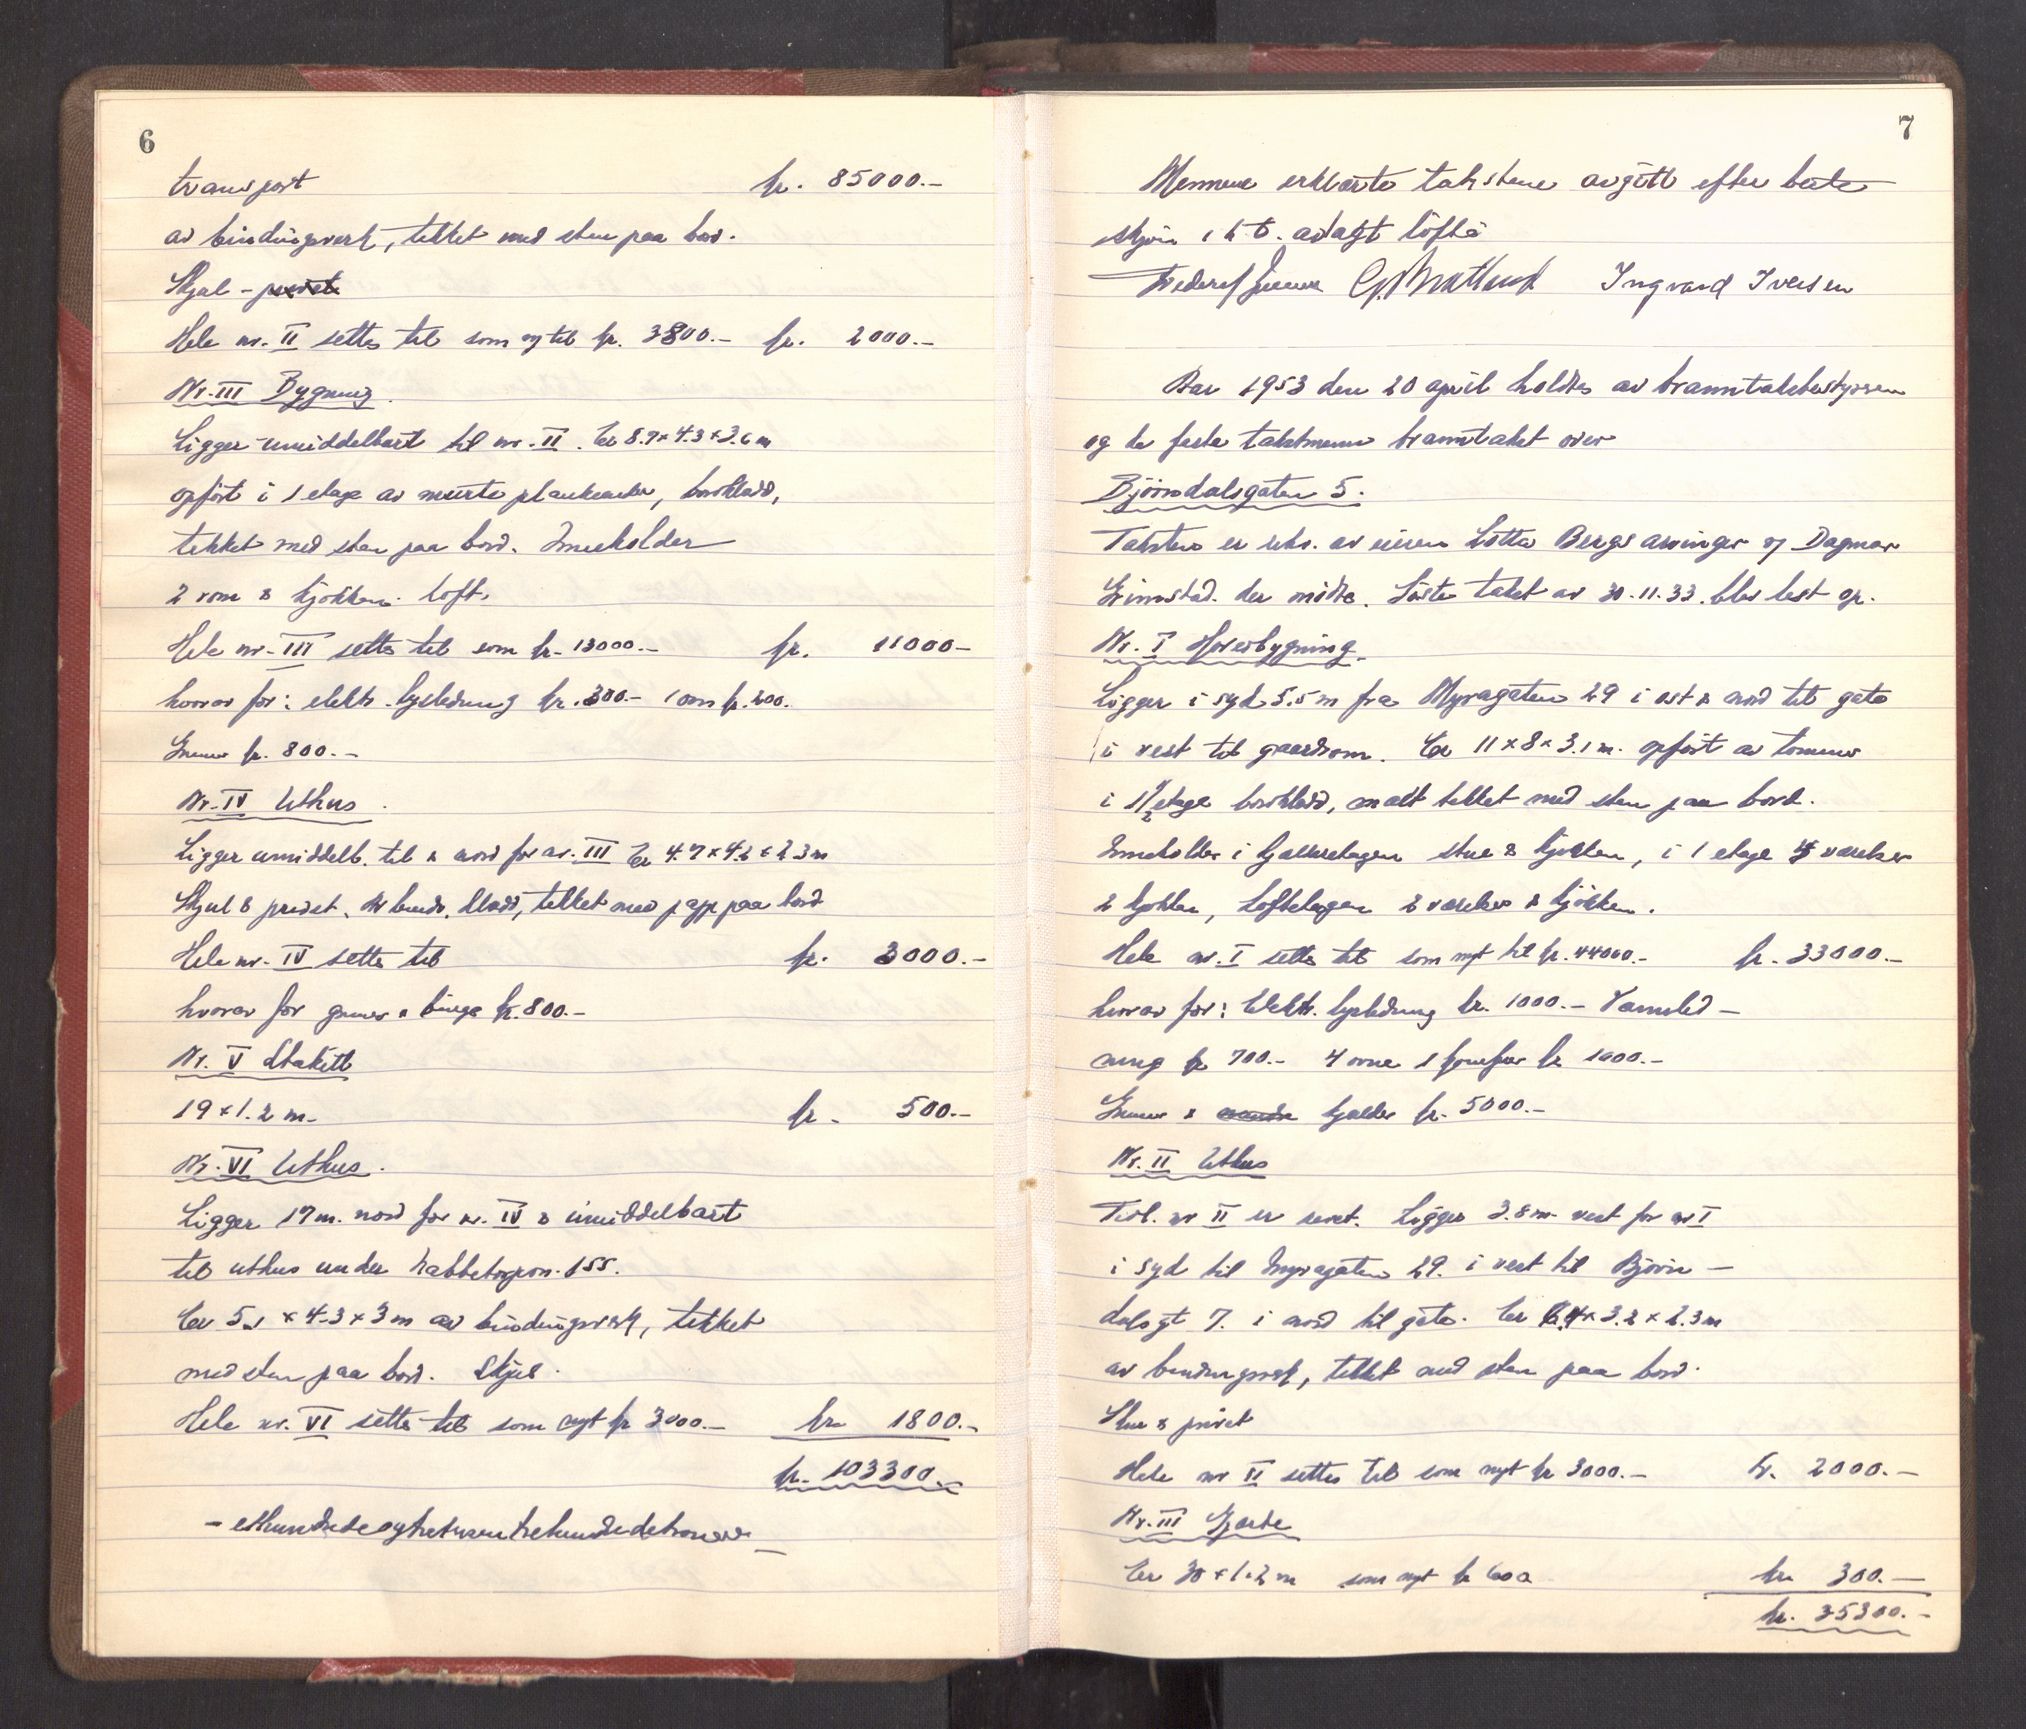 6
transport kr. 85000.-
av bindingsverk, tekket med sten paa bord.
Skjul - privet
Hele nr. II settes til som ny til kr. 3800.- kr. 2000.-
Nr. III Bygning.
Ligger umiddelbart til nr. II. Er 8.7 x 4.3 x 3.6 m
opført i 1 etage av murte plankeverk, bordkledd,
tekket med sten paa bord. Inneholder
2 rom & kjøkken. loft.
Hele nr. III settes til som kr. 13000.- kr. 11000.-
hvorav for: elektr. lysledning kr. 300.- 1 ovn kr. 200.
Grunnmur kr. 800.-
Nr. IV Uthus.
Ligger umiddelb. til & nord for nr. III Er 4.7 x 4.2 x 2.3 m
Skjul & privet. av bindv. kledd, tekket med papp paa bord
Hele nr. IV settes til kr. 3000.-
hvorav for grunnm & binge kr. 800.-
Nr. V Stakitt
19 x 1.2 m. kr. 500.-
Nr. VI Uthus.
Ligger 17 m. nord for nr. IV & umiddelbart
til uthus under 155.
Er 5.1 x 4.3 x 3 m av bindingsverk, tekket
med sten paa bord. Skjul.
Hele nr. VI settes til som nytt kr 3000.- kr 1800.-
kr. 103300.-
- etthundredeogtretusentrehundredekroner -
7
Mennene erklærte takstene avgitt efter beste
skjøn i h. t. avlagt løfte
Ingvard Iversen
Aar 1953 den 20 april holdtes av branntakstbestyreren
og de faste takstmenn branntakst over
Bjørndalsgaten 5.
Taksten er rekv. av eieren Lotta Bergs arvinger v/ Dagmar
Grimstad. der møtte. Siste takst av 30.11.33. blev lest op.
Nr. I Hovedbygning.
Ligger i syd 5.5 m fra Myragaten 29 i øst & nord til gate
i vest til gaardsrom. Er 11 x 8 x 3.1 m. opført av tømmer
i 1 1/2 etage bordkledd, malt tekket med sten paa bord.
Inneholder i kjelleretagen stue & kjøkken, i 1 etage 4 værelser
2 kjøkken, Loftetagen 2 værelser & kjøkken.
Hele nr. I settes til som nytt til kr. 44000.- kr. 33000.-
hvorav for: Elektr. lysledning kr. 1000.- Vannled-
ning kr 700.- 4 ovner 1 komfur kr 1000.-
Grunnmur & kjelder kr. 5000.-
Nr. II Uthus
Tidl. nr II er revet. Ligger 3.8 m. vest for nr I
i syd til Myragaten 29. i vest til Bjørn-
dalsgt 7. i nord til gate. Er 6.4 x 3.2 x 2.3 m
av bindingsverk, tekket med sten paa bord.
& privet
Hele nr II settes til som nytt kr 3000.- kr. 2000.-
Nr. III Gjerde
Er 30 x 1.2 m som nytt kr 600 kr 300.-
kr. 35300.-